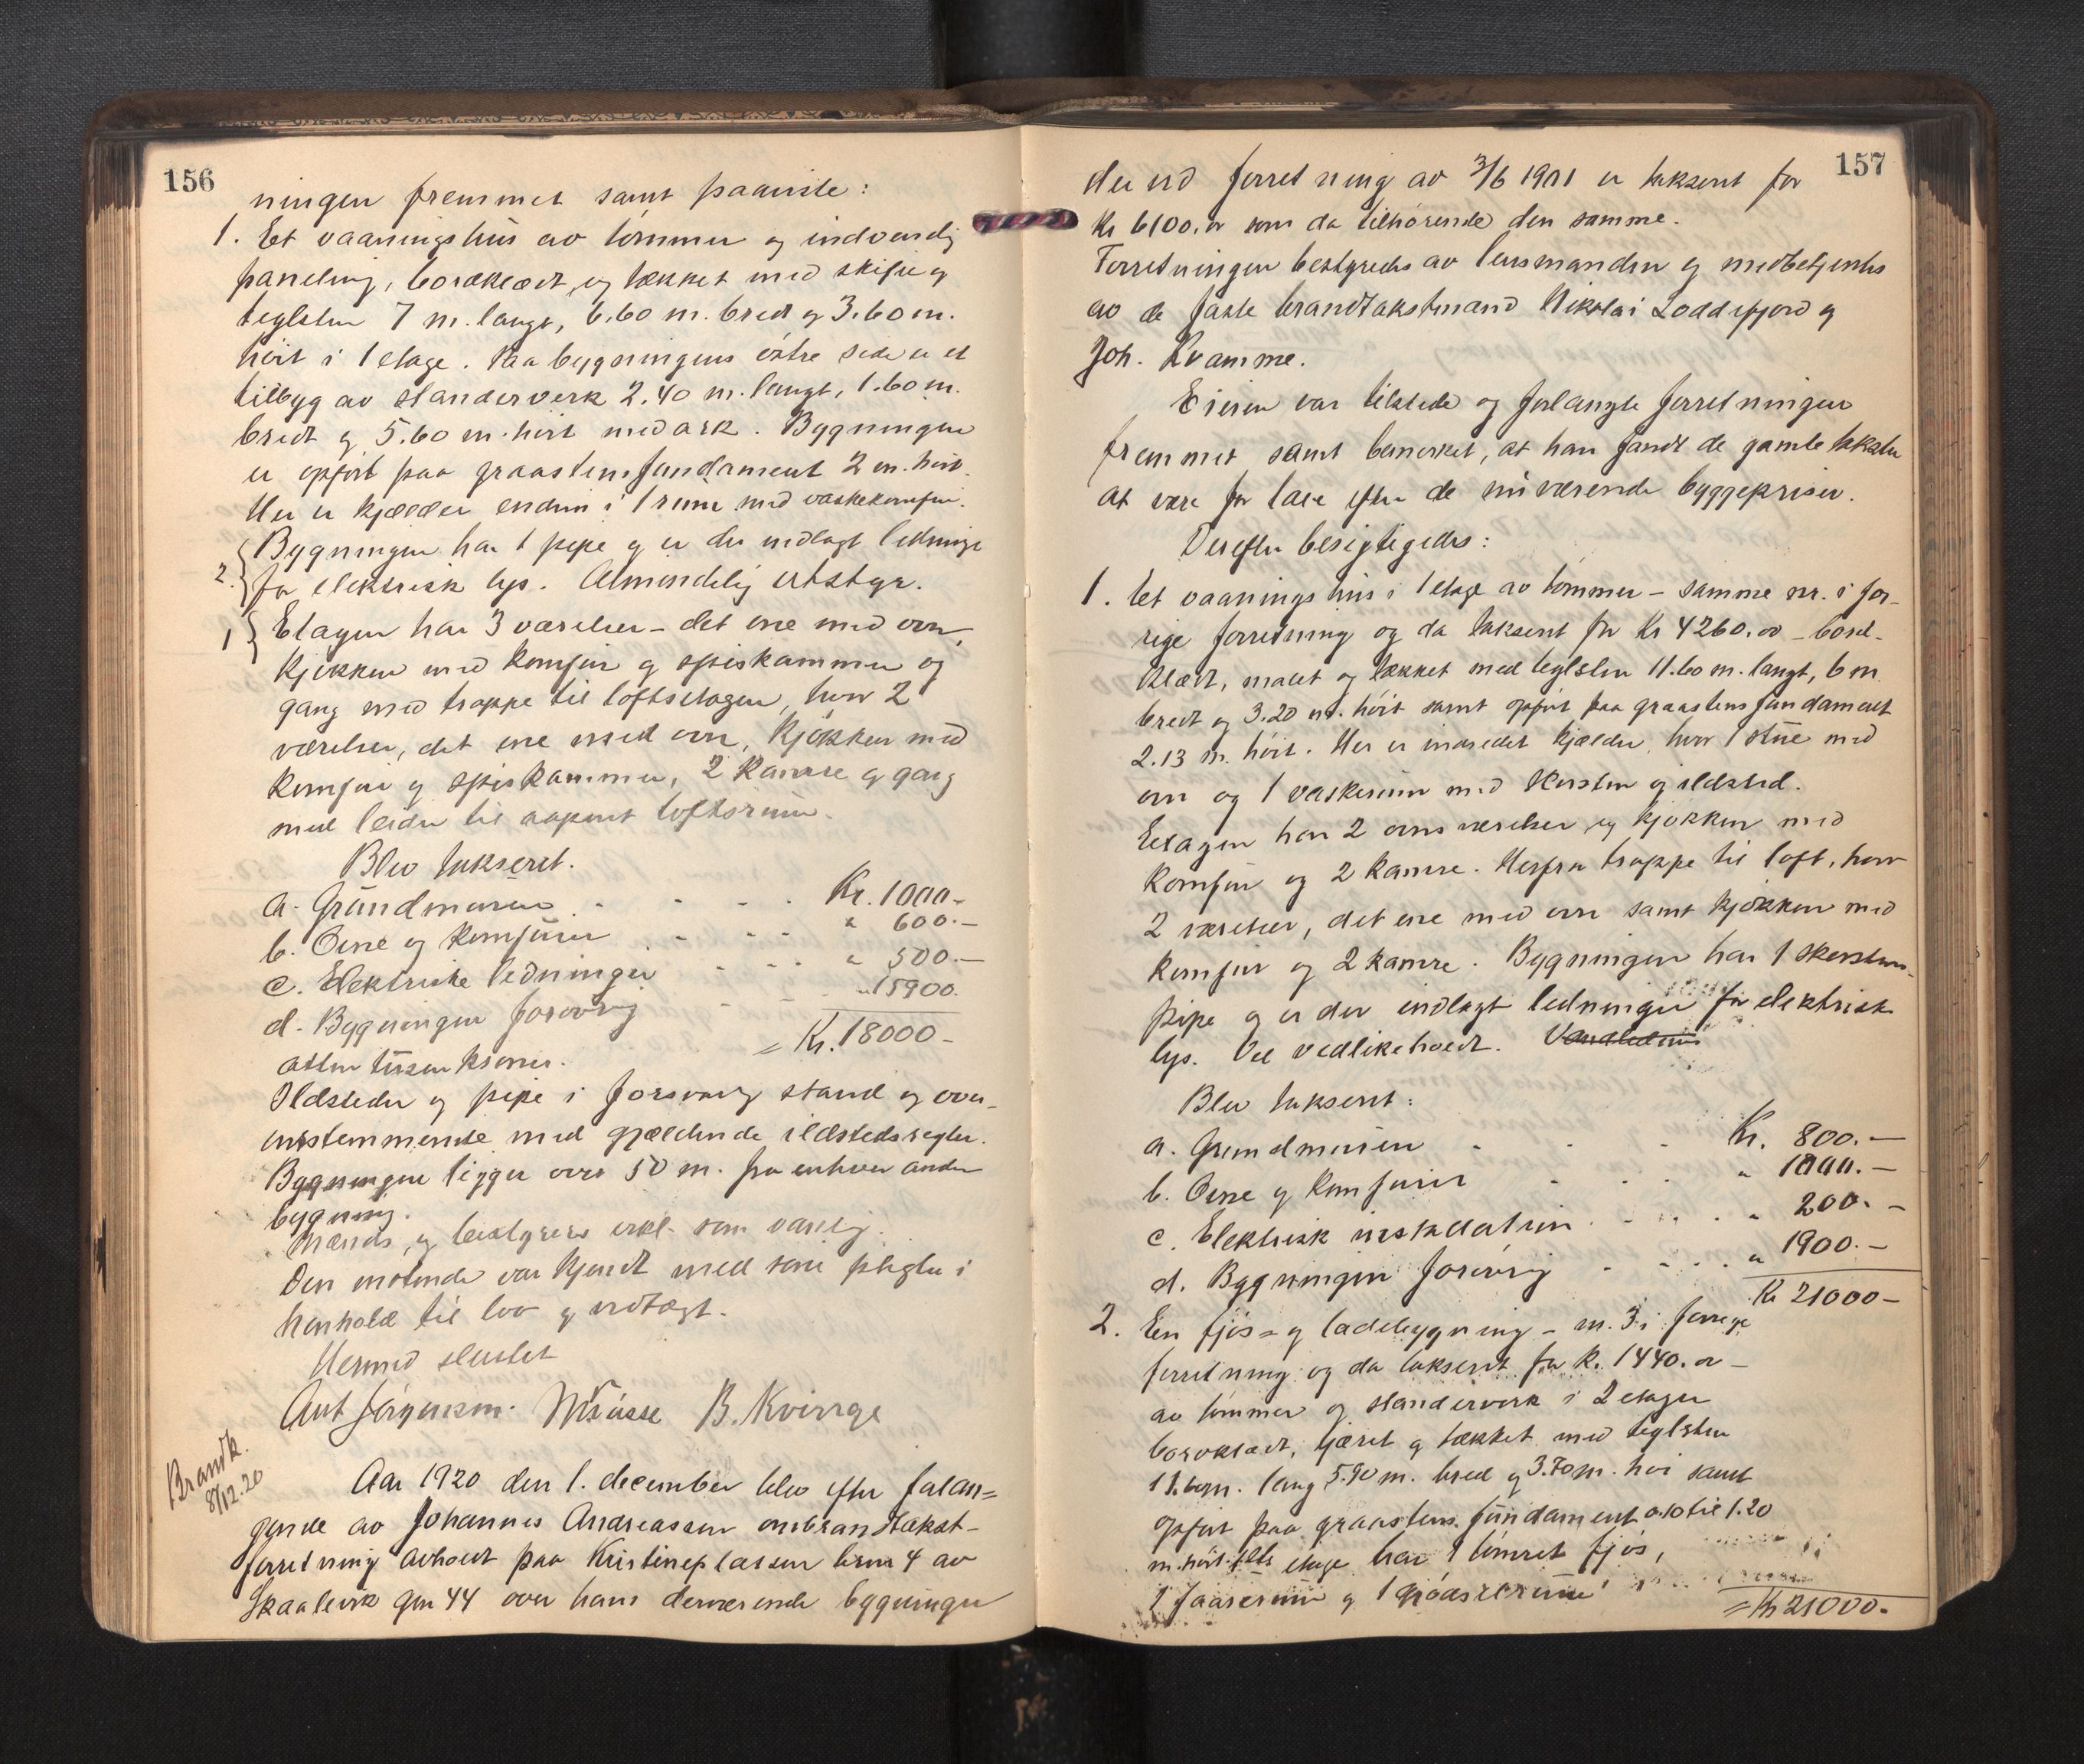 156
ningen fremmet samt paaviste:
1. Et vaaningshus av tømmer og indvendig
paneling, bordklædt og tækket med skifer og
teglsten 7 m. langt, 6.60 m. bredt og 3.60 m.
høit i 1 etage. Paa bygningens østre side er et
tilbyg av standerverk 2.40 m. langt, 1.60 m.
bredt og 5.60 m. høit med ark. Bygningen
er opført paa graastensfundament 2 m. høit.
Her er kjælder endvu i 1 rum med vaskekomfur.
2. Bygningen har 1 pipe og er der indlagt ledninger
for elektrisk lys. Almindelig utstyr.
1 Etagen har 3 værelser - det ene med ovn,
kjøkken med komfur og spiskammer og
gang med trappe til loftsetagen, hvor 2
værelser, det ene med ovn, kjøkken med
komfur og spiskammer, 2 kamre og gang
med leider til aapent loftsrum.
Blev taksert.
a. Grundmuren . - - - . Kr. 1000.-
b. Ovne og komfurer . - - - " 600.-
c. Elektriske ledninger - - - " 500.-
d. Bygningen forøvrig - - - " 15900.
atten tusen kroner. = Kr. 18000-
Ildsteder og pipe i forsvarlig stand og over-
ensstemmende med gjældende ildstedsregler.
Bygningen ligger over 50 m. fra enhver anden
bygning.
Mænds og bestyrers erkl. som vanlig.
Den møtende var kjendt med sine pligter i
henhold til lov og vedtægt.
Hermed sluttet
Ant Jørgensen. B. Kvinge
Brandk.
8/12.20
Aar 1920 den 1. december blev efter forlan=
gende av Johannes Andreassen ombrandtakst-
forretning avholdt paa Kristineplassen brnr 4 av
Skaalevik gnr 44 over hans derværende bygninger
157
der ved forretning av 3/6 1911 er taksert for
Kr 6100.00 som da tilhørende den samme.
Forretningen bestyredes av lensmanden og medbetjentes
av de faste brandtakstmænd Nikolai Loddefjord og
Joh. Kvamme.
Eieren var tilstede og forlangte forretningen
fremmet samt bemerket, at han fandt de gamle takster
at være for lave efter de nuværende byggepriser.
Derefter besigtigedes:
1. Et vaaningshus i 1 etage av tømmer - samme nr. i for-
rige forretning og da taksert for Kr 4260.00 - bord-
klædt, malet og tækket med teglsten 11.60 m. langt, 6 m
bredt og 3.20 m. høit samt opført paa graastensfundament
2.13 m. høit. Her er indredet kjælder, hvor 1 stue med
ovn og 1 vaskerum med skorsten og ildsted.
Etagen har 2 ovnsværelser og kjøkken med
komfur og 2 kamre. Herfra trappe til loft, hvor
2 værelser, det ene med ovn samt kjøkken med
komfur og 2 kamre. Bygningen har 1 skorstens-
pipe og er der indlagt ledninger for elektrisk
lys. Vel vedlikeholdt.
Blev taksert:
a. Grundmuren - - - Kr. 800.-
b. Ovne og komfurer - - - " 1000.-
c. Elektrisk installation - - - " 200.-
d. Bygningen forøvrig - - - " 1900.-
Kr 21000-
2. En fjøs- og ladebygning - nr. 3 i forrige
forretning og da taksert for Kr. 1440.00 -
av tømmer og standerverk i 2 etager
bordklædt, tjæret og tækket med teglsten
11.60 m. lang 5.90 m. bred og 3.70 m. høi samt
opført paa graastens fundament 0.10 til 1.20
m. høit. etage har 1 tømret fjøs,
1 faarerum og 1
= Kr 21000.-